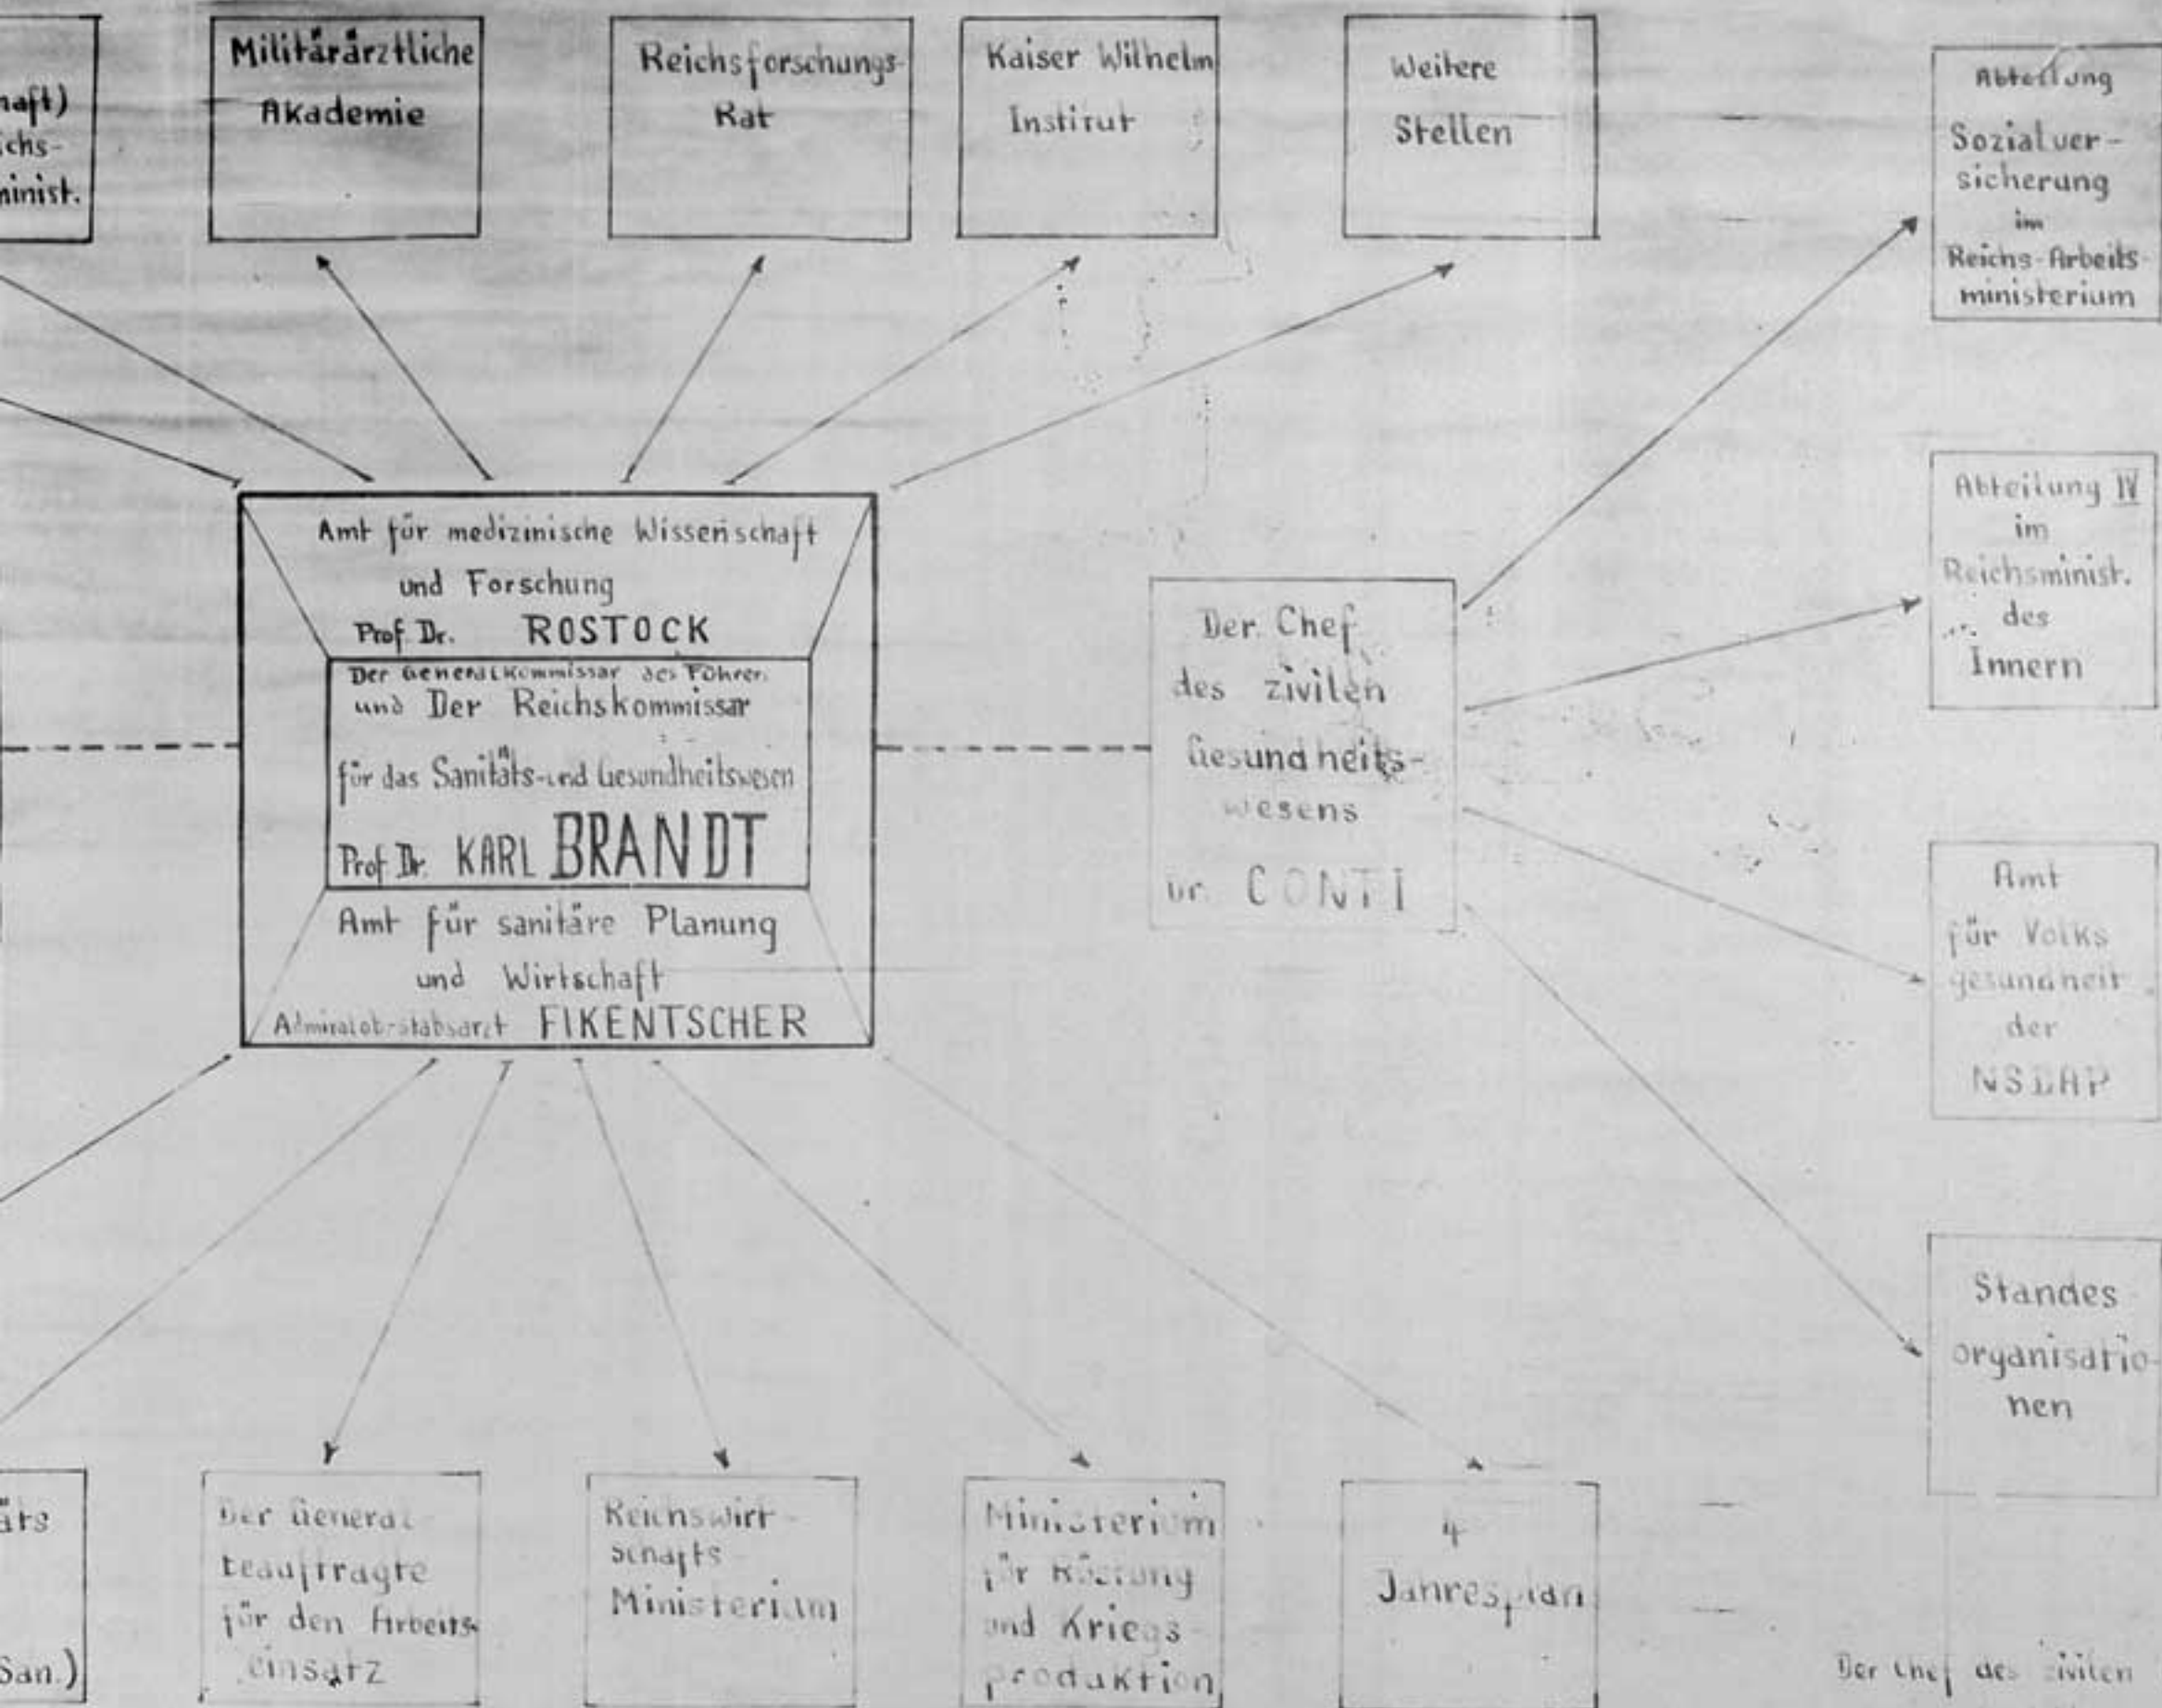 haft)
ichs-
minist.
Militärärztliche
Akademie
Reichsforschungs-
Rat
Kaiser Wilhelm
Institut
Weitere
Stellen
Abteilung
Sozialver-
sicherung
im
Reichs-Arbeits-
ministerium
Amt für medizinische Wissenschaft
und Forschung
Prof. Dr. ROSTOCK
Der Generalkommissar des Führers
und Der Reichskommissar
für das Sanitäts-und Gesundheitswesen
Prof. Dr. KARL BRANDT
Amt für sanitäre Planung
und Wirtschaft
Admiraloberstabsarzt FIKENTSCHER
Der Chef
des zivilen
Gesundheits-
wesens
Dr. CONTI
Abteilung IV
im
Reichsminist.
des
Innern
Amt
für Volks
gesundheit
der
NSDAP
Standes
organisatio-
nen
äts
San.)
Der General
beauftragte
für den Arbeits-
einsatz
Reichswirt-
schafts-
Ministerium
Ministerium
für Rüstung
und Kriegs-
produktion
4
Jahresplan
Der Chef des zivilen